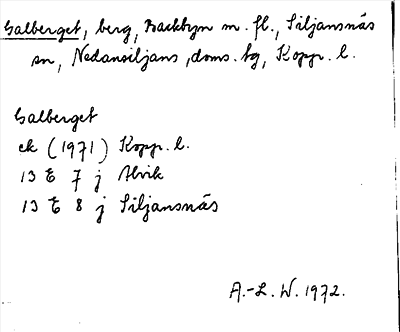 Galberget, berg, Backbyn m. fl., Siljansnäs
sn, Nedansiljans, doms. hg, Kopp. l.
Galberget
ek (1971) Kopp. l.
13 E 7 j Alvik
13 E 8 j Siljansnäs
A.-L. W. 1972.